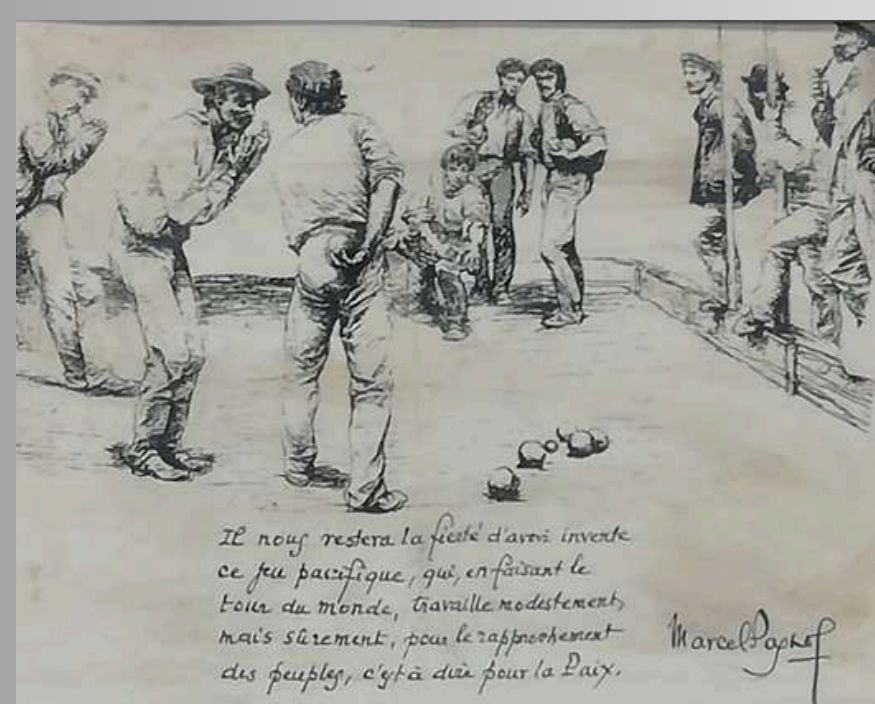 Il nous restera la fierté d'avoir inventé
ce jeu pacifique, qui, en faisant le
tour du monde, travaille modestement,
mais sûrement, pour le rapprochement
des peuples, c'est à dire pour la Paix.
Marcel Pagnol